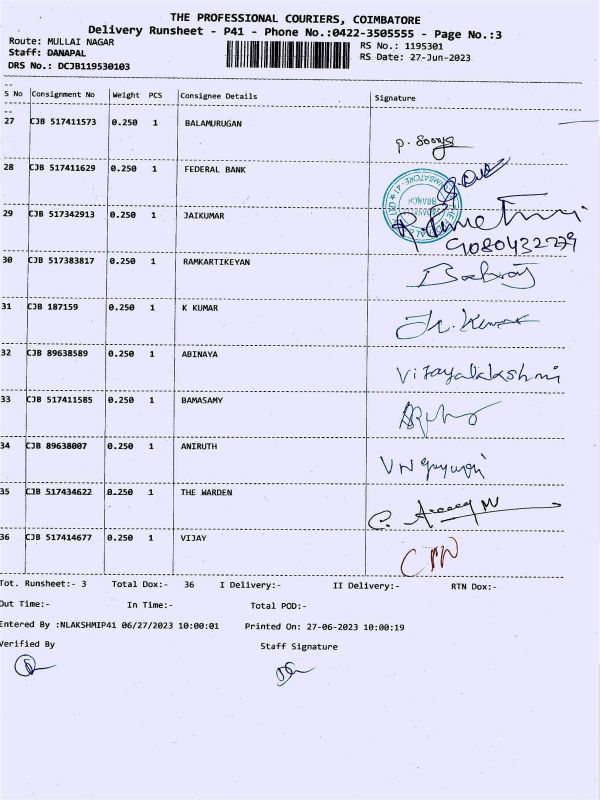 THE PROFESSIONAL COURIERS, COIMBATORE
Delivery Runsheet - P41 - Phone No.:0422-3505555 - Page No.:3
Route: MULLAI NAGAR RS No.: 1195301
Staff: DANAPAL RS Date: 27-Jun-2023
DRS No.: DCJB119530103
S No Consignment No Weight PCS Consignee Details Signature
27 CJB 517411573 0.250 1 BALAMURUGAN
P. Soorya
28 CJB 517411629 0.250 1 FEDERAL BANK
29 CJB 517342913 0.250 1 JAIKUMAR
9080432779
30 CJB 517383817 0.250 1 RAMKARTIKEYAN
31 CJB 187159 0.250 1 K KUMAR
Kumar
32 CJB 89638589 0.250 1 ABINAYA
Vijayalakshmi
33 CJB 517411585 0.250 1 BAMASAMY
34 CJB 89638007 0.250 1 ANIRUTH
35 CJB 517434622 0.250 1 THE WARDEN
36 CJB 517414677 0.250 1 VIJAY
Tot. Runsheet:- 3 Total Dox:- 36 I Delivery:- II Delivery:- RTN Dox:-
Out Time:- In Time:- Total POD:-
Entered By :NLAKSHMIP41 06/27/2023 10:00:01 Printed On: 27-06-2023 10:00:19
Verified By Staff Signature